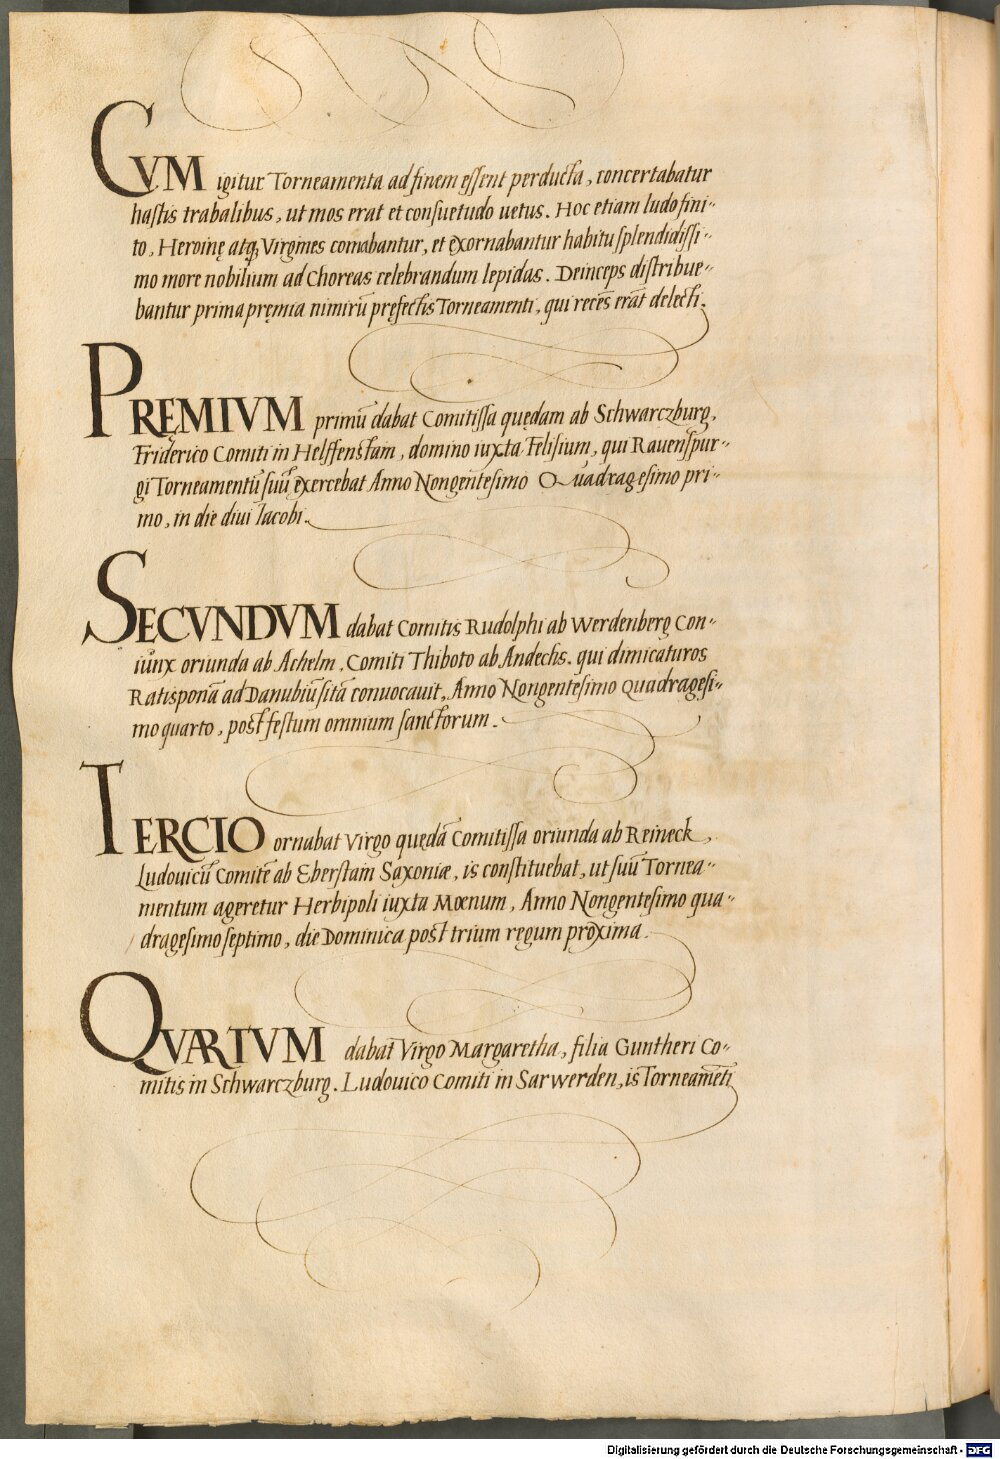 CVM igitur Torneamenta ad finem essent perducta, concertabatur
hastis trabalibus, ut mos erat et consuetudo uetus. Hoc etiam ludo fini-
to, Heroinę atq₃ Virgines comabantur, et exornabantur habitu splendidissi-
mo more nobilium ad Choreas celebrandum lepidas. Deinceps distribue-
bantur prima pręmia nimirū pręfectis Torneamenti, qui recēs erāt delecti.
PRĘMIVM primū dabat Comitissa quędam ab Schwarczburg,
Friderico Comiti in Helffenstain, domino iuxta Felisium, qui Rauenspur-
gi Torneamentū suū exercebat Anno Nongentesimo Quadragesimo pri-
mo, in die diui Iacobi.
SECVNDVM dabat Comitis Rudolphi ab Werdenberg Con-
iūnx oriunda ab Achelm, Comiti Thiboto ab Andechs. qui dimicaturos
Ratisponā ad Danubiū sitā conuocauit, Anno Nongentesimo Quadragesi-
mo quarto, post festum omnium sanctorum.
TERCIO ornabat Virgo quędā Comitissa oriunda ab Reineck,
Ludouicū Comitē ab Eberstain Saxoniæ, is constituebat, ut suū Tornea-
mentum ageretur Herbipoli iuxta Mœnum, Anno Nongentesimo qua-
dragesimo septimo, die Dominica post trium regum proxima.
QVARTVM dabat Virgo Margaretha, filia Guntheri Co-
mitis in Schwarczburg. Ludouico Comiti in Sarwerden, is Torneamēti
Digitalisierung gefördert durch die Deutsche Forschungsgemeinschaft - DFG